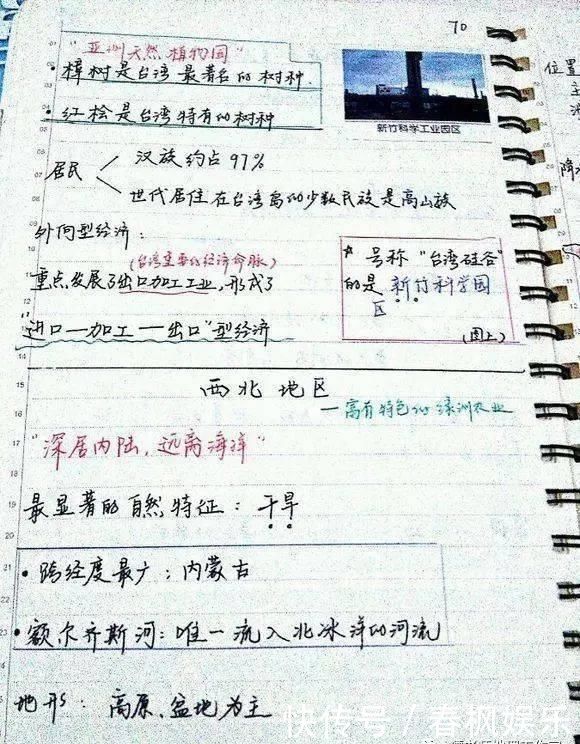 70
"亚洲天然植物园"
• 樟树是台湾最著名的树种.
• 红桧是台湾特有的树种
新竹科学工业园区
居民
汉族约占97%
世代居住在台湾岛的少数民族是高山族
外向型经济:
(台湾重要的经济命脉)
重点发展了出口加工工业,形成了
"进口—加工—出口"型经济
* 号称"台湾硅谷"
的是新竹科学园
区
(图上)
西北地区
—富有特色的绿洲农业
"深居内陆,远离海洋"
最显著的自然特征:干旱
• 跨经度最广:内蒙古
• 额尔齐斯河:唯一流入北冰洋的河流
地形:高原、盆地为主
位置
降水
快传号/春枫娱乐